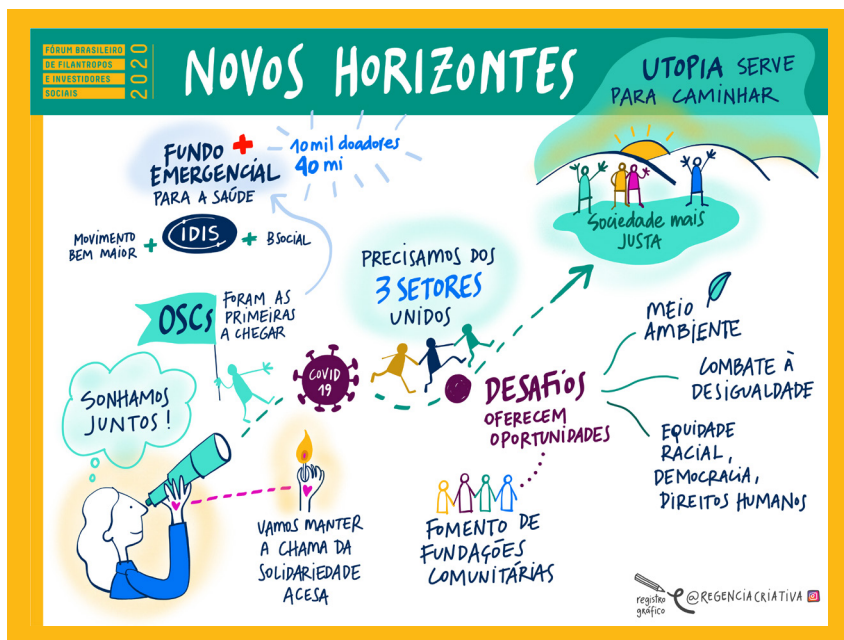 FÓRUM BRASILEIRO
DE FILANTROPOS
E INVESTIDORES
SOCIAIS
2020
NOVOS HORIZONTES
UTOPIA SERVE
PARA CAMINHAR
FUNDO
EMERGENCIAL
PARA A SAÚDE
10 mil doadores
40 mi
Sociedade mais
JUSTA
MOVIMENTO
BEM MAIOR
+
IDIS
+
BSOCIAL
PRECISAMOS DOS
3 SETORES
UNIDOS
OSCs
FORAM AS
PRIMEIRAS
A CHEGAR
COVID
19
SONHAMOS
JUNTOS!
DESAFIOS
OFERECEM
OPORTUNIDADES
MEIO
AMBIENTE
COMBATE À
DESIGUALDADE
EQUIDADE
RACIAL,
DEMOCRACIA,
DIREITOS HUMANOS
VAMOS MANTER
A CHAMA DA
SOLIDARIEDADE
ACESA
FOMENTO DE
FUNDAÇÕES
COMUNITÁRIAS
registro
gráfico
@REGENCIACRIATIVA